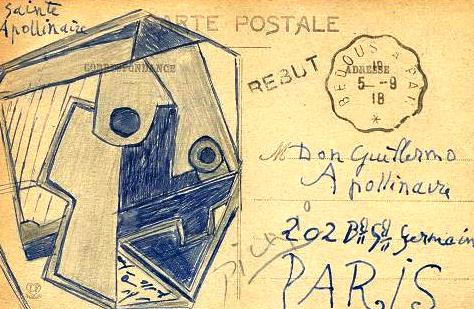 Sainte
Apollinaire
CARTE POSTALE
CORRESPONDANCE
REBUT
ADRESSE
5-9
18
*
M Don Guillermo
Apollinaire
202 Bd St Germain
PARIS